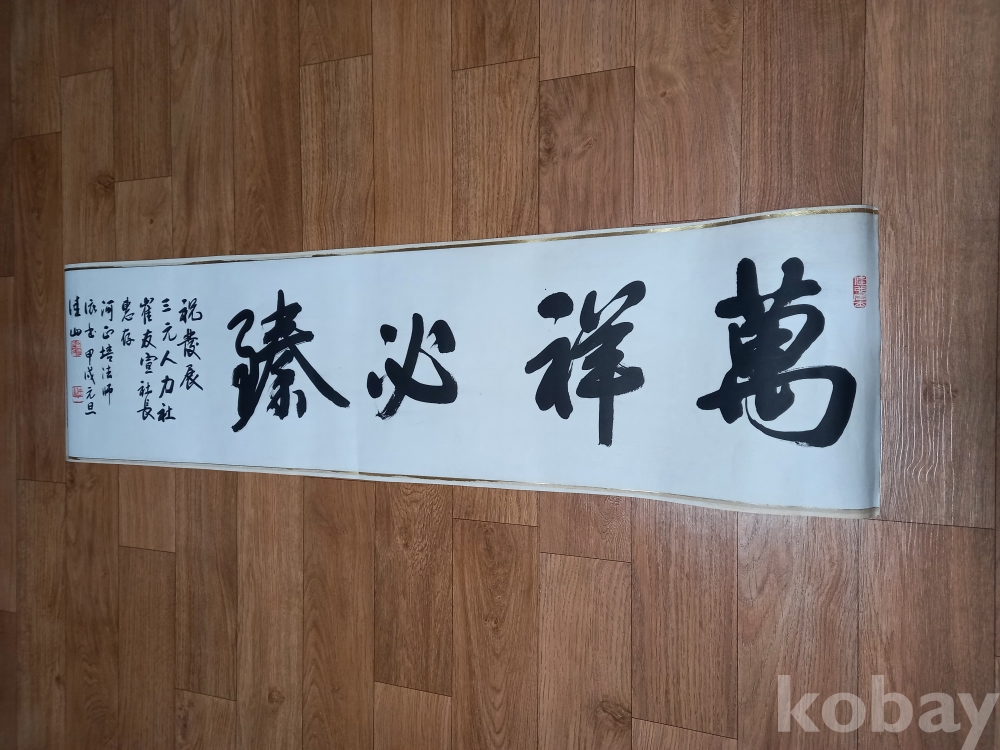 萬祥必臻
祝發展
三元人力社
崔友宣社長
惠存
河正培法師
依書 甲戌元旦
kobay